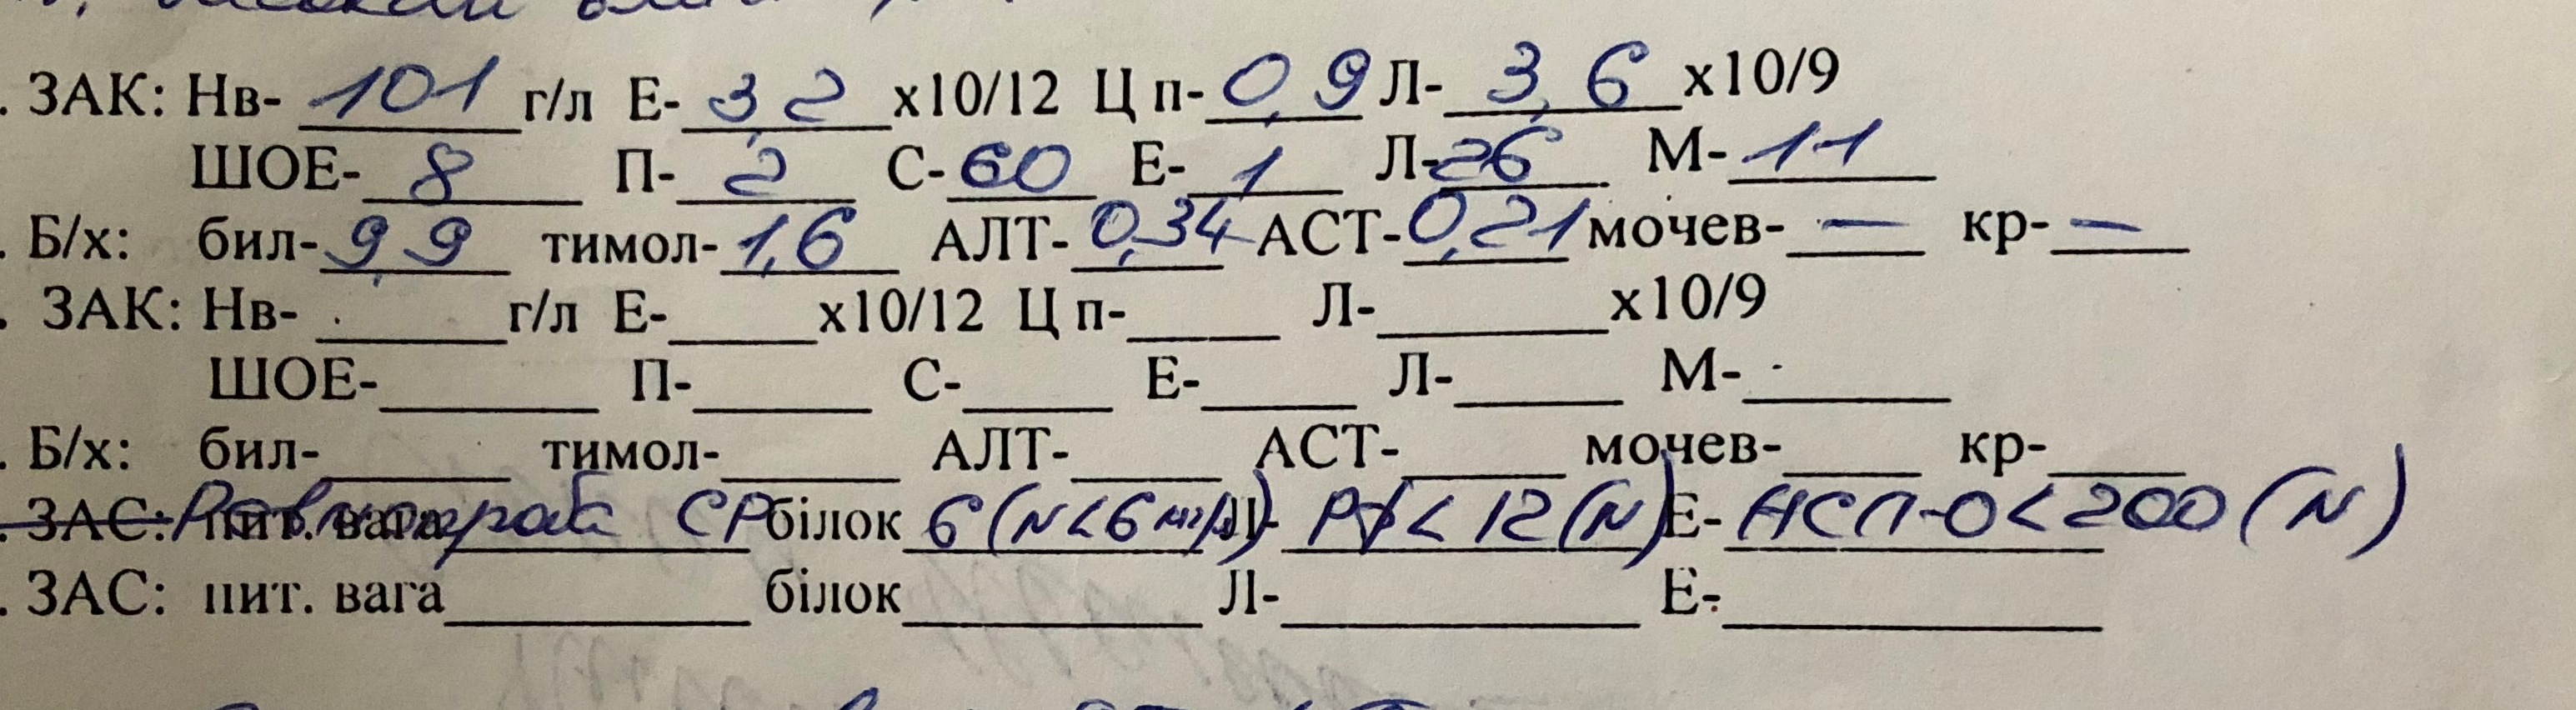 . ЗАК: Нв- 101 г/л Е- 3,2 х10/12 Ц п- 0,9 Л- 3,6 х10/9
ШОЕ- 8 П- 2 С- 60 Е- 1 Л- 26 М- 11
. Б/х: бил- 9,9 тимол- 1,6 АЛТ- 0,34 АСТ- 0,21 мочев- — кр- —
. ЗАК: Нв- ______ г/л Е- ______ х10/12 Ц п- ______ Л- ______ х10/9
ШОЕ- ______ П- ______ С- ______ Е- ______ Л- ______ М- ______
. Б/х: бил- ______ тимол- ______ АЛТ- ______ АСТ- ______ мочев- ______ кр- ______
. ЗАС: Ревмопроб пит. вага СР білок 6 (N<6 мг/л) Л- РФ < 12 (N) Е- АСЛ-О < 200 (N)
. ЗАС: пит. вага ______ білок ______ Л- ______ Е- ______